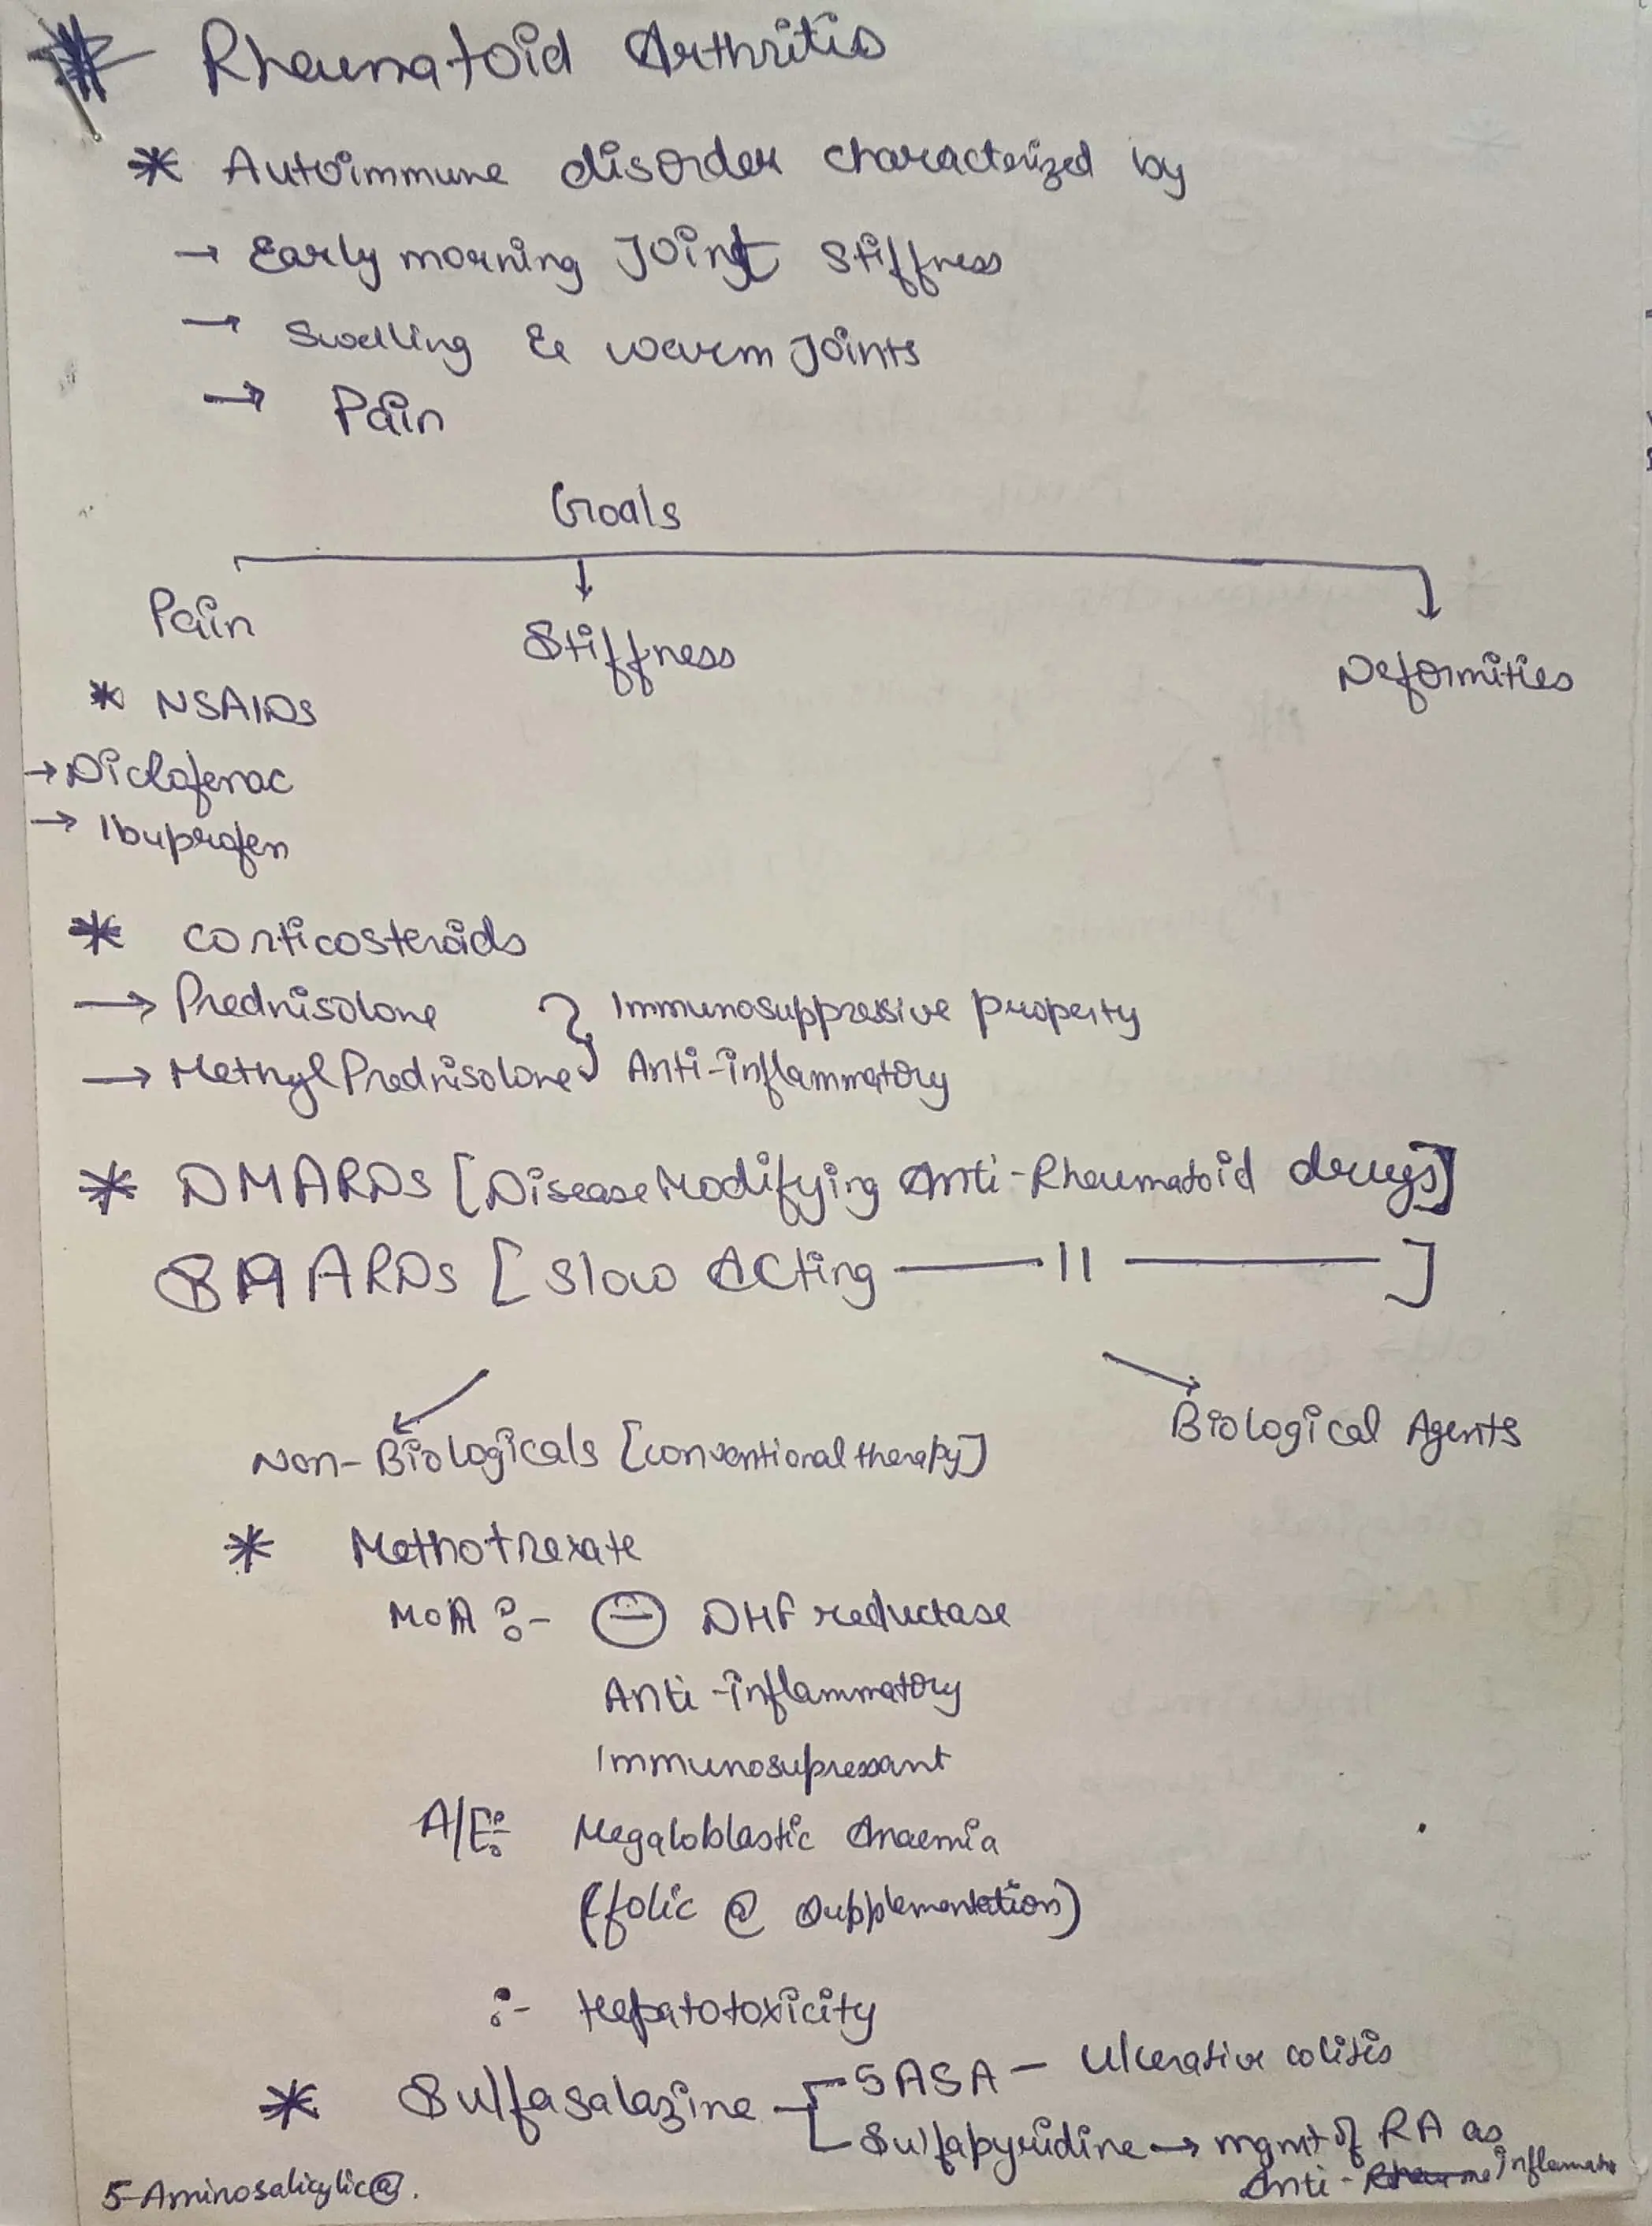 # Rheumatoid Arthritis
* Autoimmune disorder characterized by
→ Early morning Joint Stiffness
→ Swelling & warm Joints
→ Pain
Goals
Pain
Stiffness
Deformities
* NSAIDs
→ Diclofenac
→ Ibuprofen
* Corticosteroids
→ Prednisolone } Immunosuppressive property
→ Methyl Prednisolone Anti-inflammatory
* DMARDs [Disease Modifying Anti-Rheumatoid drugs]
SAARDs [Slow Acting —— 11 ——]
Non-Biologicals [conventional therapy]
Biological Agents
* Methotrexate
MOA :- ⊖ DHF reductase
Anti-inflammatory
Immunosupressant
A/E :- Megaloblastic Anaemia
(folic @ supplementation)
:- Hepatotoxicity
* Sulfasalazine
5ASA — Ulcerative colitis
Sulfapyridine → mgmt of RA as
Anti-inflammato
5-Aminosalicylic@.